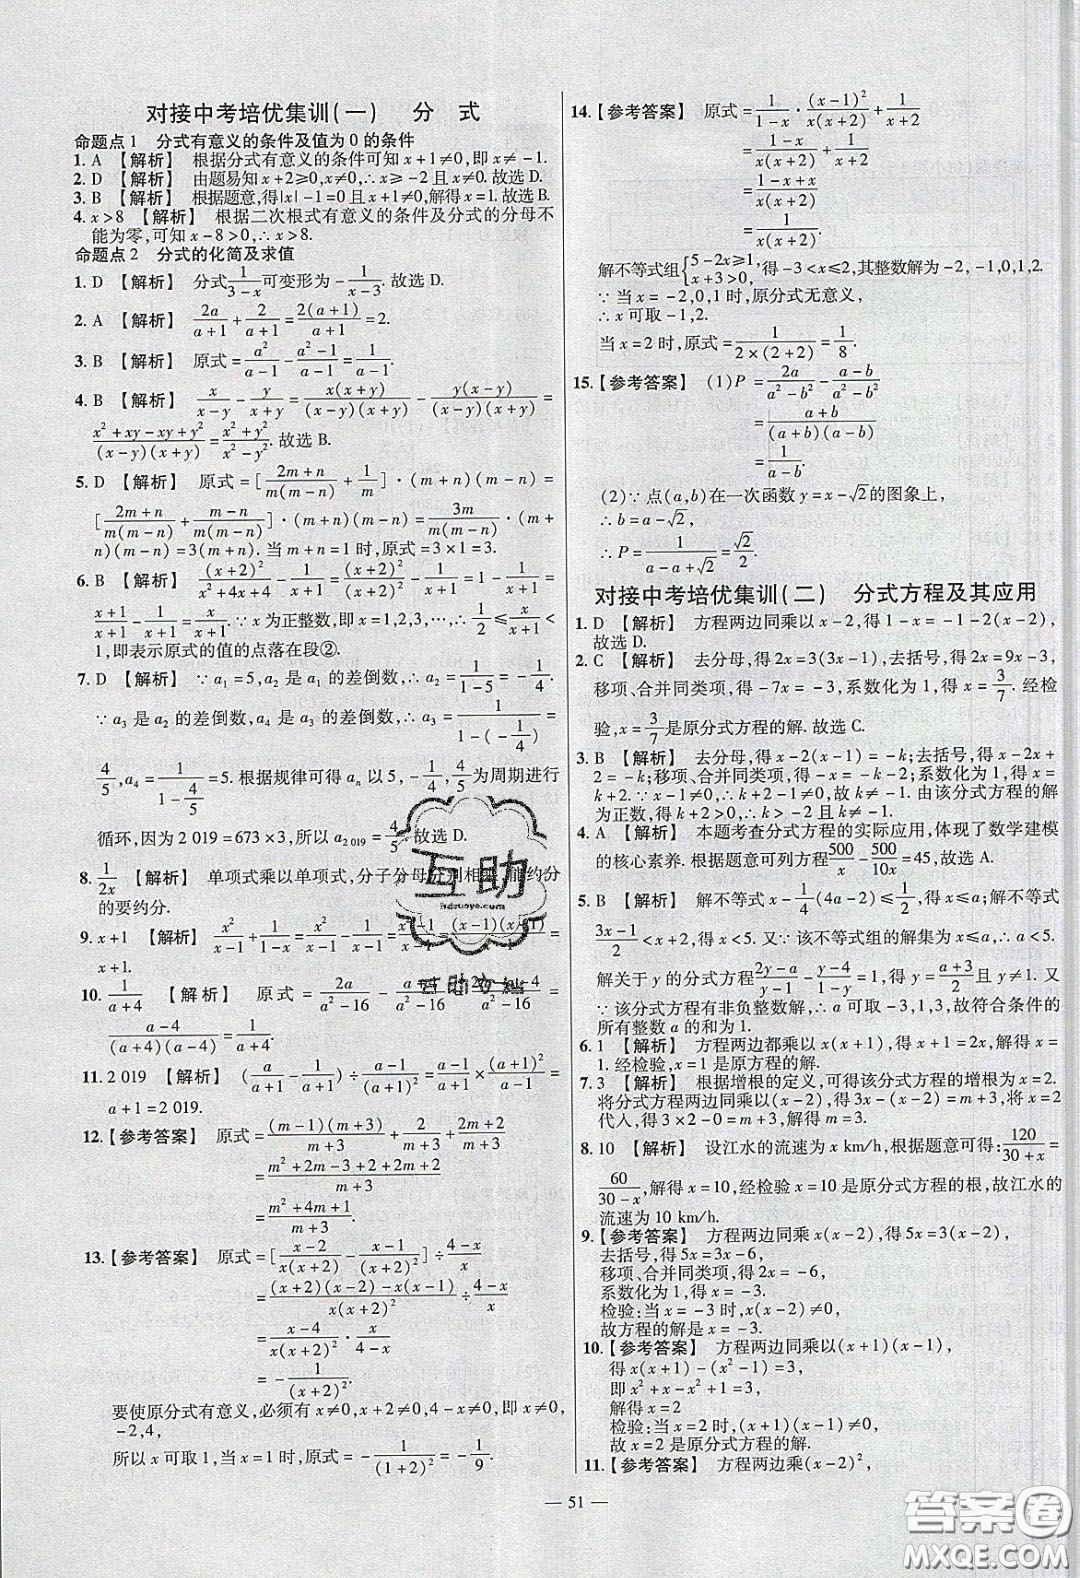 对接中考培优集训(一)　分　式
命题点1　分式有意义的条件及值为0的条件
1. A 【解析】 根据分式有意义的条件可知 x+1≠0,即 x≠-1.
2. D 【解析】 由题易知 x+2≥0,x≠0,∴x≥-2 且 x≠0.故选 D.
3. B 【解析】 根据题意,得|x|-1=0 且 x+1≠0,解得 x=1.故选 B.
4. x>8 【解析】 根据二次根式有意义的条件及分式的分母不
能为零,可知 x-8>0,∴x>8.
命题点2　分式的化简及求值
1. D 【解析】 分式 1/(3-x) 可变形为 -1/(x-3).故选 D.
2. A 【解析】 2a/(a+1)+2/(a+1)=2(a+1)/(a+1)=2.
3. B 【解析】 原式=a²/(a-1)-(a²-1)/(a-1)=1/(a-1).
4. B 【解析】 x/(x-y)-y/(x+y)=x(x+y)/(x-y)(x+y)-y(x-y)/(x-y)(x+y)=
(x²+xy-xy+y²)/(x-y)(x+y)=(x²+y²)/(x²-y²).故选 B.
5. D 【解析】 原式=[(2m+n)/m(m-n)+1/m]·(m+n)(m-n)=
[(2m+n)/m(m-n)+(m-n)/m(m-n)]·(m+n)(m-n)=3m/m(m-n)·(m+
n)(m-n)=3(m+n).当 m+n=1 时,原式=3×1=3.
6. B 【解析】 (x+2)²/(x²+4x+4)-1/(x+1)=(x+2)²/(x+2)²-1/(x+1)=1-1/(x+1)=
(x+1-1)/(x+1)=x/(x+1).∵x 为正整数,即 x=1,2,3,…,∴1/2≤x/(x+1)<
1,即表示原式的值的点落在段②.
7. D 【解析】 ∵a₁=5,a₂ 是 a₁ 的差倒数,∴a₂=1/(1-5)=-1/4.
∵a₃ 是 a₂ 的差倒数,a₄ 是 a₃ 的差倒数,∴a₃=1/(1-(-1/4))=
4/5,a₄=1/(1-4/5)=5.根据规律可得 aₙ 以 5,-1/4,4/5为周期进行
循环,因为 2 019=673×3,所以 a₂₀₁₉=4/5.故选 D.
8. 1/2x 【解析】 单项式乘以单项式,分子分母分别相乘,能约分
的要约分.
9. x+1 【解析】 x²/(x-1)+1/(1-x)=x²/(x-1)-1/(x-1)=(x-1)(x+1)/(x-1)=
x+1.
10. 1/(a+4) 【解析】 原式=2a/(a²-16)-(a+4)/(a²-16)=(a-4)/(a²-16)=
(a-4)/(a+4)(a-4)=1/(a+4).
11. 2 019 【解析】 (a/(a+1)-1/(a+1))÷(a-1)/(a+1)²=(a-1)/(a+1)×(a+1)²/(a-1)=
a+1=2 019.
12. 【参考答案】 原式=(m-1)(m+3)/(m+3)+2/(m+3)+(2m+2)/(m+3)
=(m²+2m-3+2+2m+2)/(m+3)
=(m²+4m+1)/(m+3).
13. 【参考答案】 原式=[(x-2)/x(x+2)-(x-1)/(x+2)²]÷(4-x)/x
=((x+2)(x-2)-x(x-1))/x(x+2)²÷(4-x)/x
=(x-4)/x(x+2)²·x/(4-x)
=-1/(x+2)².
要使原分式有意义,必须有 x≠0,x+2≠0,4-x≠0,即 x≠0,
-2,4,
所以 x 可取 1,当 x=1 时,原式=-1/(1+2)²=-1/9.
14. 【参考答案】 原式=1/(1-x)·(x-1)²/x(x+2)+1/(x+2)
=(1-x)/x(x+2)+1/(x+2)
=(1-x+x)/x(x+2)
=1/x(x+2).
解不等式组{5-2x≥1, x+3>0,得-3<x≤2,其整数解为-2,-1,0,1,2.
∵当 x=-2,0,1 时,原分式无意义,
∴x 可取-1,2.
当 x=2 时,原式=1/2×(2+2)=1/8.
15. 【参考答案】 (1)P=2a/(a²-b²)-(a-b)/(a²-b²)
=(a+b)/(a+b)(a-b)
=1/(a-b).
(2)∵点(a,b)在一次函数 y=x-√2的图象上,
∴b=a-√2,
∴P=1/(a-a+√2)=√2/2.
对接中考培优集训(二)　分式方程及其应用
1. D 【解析】 方程两边同乘以 x-2,得 1-x=-1-2(x-2),
故选 D.
2. C 【解析】 去分母,得 2x=3(3x-1),去括号,得 2x=9x-3,
移项、合并同类项,得-7x=-3,系数化为 1,得 x=3/7.经检
验,x=3/7是原分式方程的解.故选 C.
3. B 【解析】 去分母,得 x-2(x-1)=-k;去括号,得 x-2x+
2=-k;移项、合并同类项,得-x=-k-2;系数化为 1,得 x=
k+2.∵x-1≠0,∴k+2-1≠0,∴k≠-1.由该分式方程的解
为正数,得 k+2>0,∴k>-2 且 k≠-1.
4. A 【解析】 本题考查分式方程的实际应用,体现了数学建模
的核心素养.根据题意可列方程500/x-500/10x=45,故选 A.
5. B 【解析】 解不等式 x-1/4(4a-2)≤1/2,得 x≤a.解不等式
(3x-1)/2<x+2,得 x<5.又∵该不等式组的解集为 x≤a,∴a<5.
解关于 y 的分式方程(2y-a)/(y-1)-(y-4)/(1-y)=1,得 y=(a+3)/2且 y≠1.又
∵该分式方程有非负整数解,∴a 可取-3,1,3,故符合条件的
所有整数 a 的和为 1.
6. 1 【解析】 方程两边都乘以 x(x+1),得 x+1=2x,解得 x=
1.经检验,x=1 是原方程的解.
7. 3 【解析】 根据增根的定义,可得该分式方程的增根为 x=2.
将分式方程两边同乘以(x-2),得 3x-(x-2)=m+3,将 x=2
代入,得 3×2-0=m+3,解得 m=3.
8. 10 【解析】 设江水的流速为 x km/h,根据题意可得:120/(30+x)=
60/(30-x),解得 x=10,经检验 x=10 是原分式方程的根,故江水的
流速为 10 km/h.
9. 【参考答案】 方程两边同乘 x(x-2),得 5x=3(x-2),
去括号,得 5x=3x-6,
移项、合并同类项,得 2x=-6,
系数化为 1,得 x=-3.
检验:当 x=-3 时,x(x-2)≠0,
故方程的解是 x=-3.
10. 【参考答案】 方程两边同乘以(x+1)(x-1),
得 x(x+1)-(x²-1)=3,
即 x²+x-x²+1=3,
解得 x=2
检验:当 x=2 时,(x+1)(x-1)≠0,
故 x=2 是原分式方程的解.
11. 【参考答案】 方程两边乘(x-2)²,
— 51 —
互助
hdzuoye.com
互助文档
答案圈
MXQE.COM